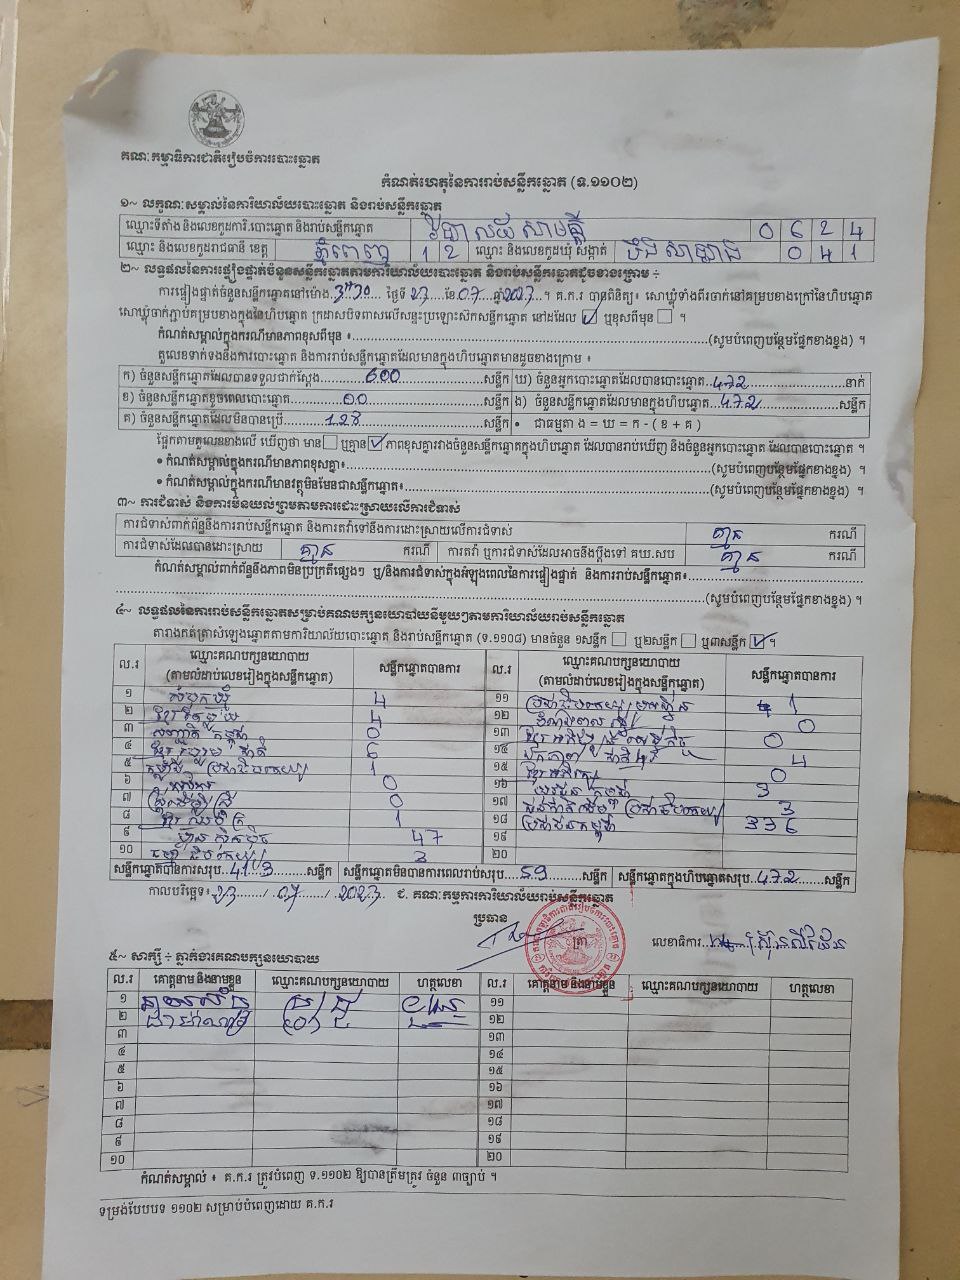 គណៈកម្មាធិការជាតិរៀបចំការបោះឆ្នោត
កំណត់ហេតុនៃការរាប់សន្លឹកឆ្នោត (ទ.១១០២)
១~ លក្ខណៈសម្គាល់នៃការិយាល័យបោះឆ្នោត និងរាប់សន្លឹកឆ្នោត
ឈ្មោះទីតាំង និងលេខកូដការិ.បោះឆ្នោត និងរាប់សន្លឹកឆ្នោត 0 6 2 4
ឈ្មោះ និងលេខកូដរាជធានី ខេត្ត ភ្នំពេញ 1 2 ឈ្មោះ និងលេខកូដឃុំ សង្កាត់ 0 4 1
២~ លទ្ធផលនៃការផ្ទៀងផ្ទាត់ចំនួនសន្លឹកឆ្នោតតាមការិយាល័យបោះឆ្នោត និងរាប់សន្លឹកឆ្នោតដូចខាងក្រោម ÷
ការផ្ទៀងផ្ទាត់ចំនួនសន្លឹកឆ្នោតនៅម៉ោង ថ្ងៃទី 23 ខែ 07 ឆ្នាំ 2023 ។ គ.ក.រ បានពិនិត្យ៖ សោឃ្មុំទាំងពីរចាក់នៅគម្របខាងក្រៅនៃហិបឆ្នោត
សោឃ្មុំចាក់ភ្ជាប់គម្របខាងក្នុងនៃហិបឆ្នោត ក្រដាសបិទពាសលើសន្ទះប្រឡោះសិកសន្លឹកឆ្នោត នៅដដែល ☑ ឬខុសពីមុន ☐ ។
កំណត់សម្គាល់ក្នុងករណីមានភាពខុសពីមុន៖ (សូមបំពេញបន្ថែមផ្នែកខាងខ្នង) ។
តួលេខទាក់ទងនឹងការបោះឆ្នោត និងការរាប់សន្លឹកឆ្នោតដែលមានក្នុងហិបឆ្នោតមានដូចខាងក្រោម ៖
ក) ចំនួនសន្លឹកឆ្នោតដែលបានទទួលជាក់ស្តែង 600 សន្លឹក ឃ) ចំនួនអ្នកបោះឆ្នោតដែលបានបោះឆ្នោត 472 នាក់
ខ) ចំនួនសន្លឹកឆ្នោតខូចពេលបោះឆ្នោត 00 សន្លឹក ង) ចំនួនសន្លឹកឆ្នោតដែលមានក្នុងហិបឆ្នោត 472 សន្លឹក
គ) ចំនួនសន្លឹកឆ្នោតដែលមិនបានប្រើ 128 សន្លឹក • ជាធម្មតា ង = ឃ = ក - ( ខ + គ )
ផ្អែកតាមតួលេខខាងលើ ឃើញថា មាន ☐ ឬគ្មាន ☑ ភាពខុសគ្នារវាងចំនួនសន្លឹកឆ្នោតក្នុងហិបឆ្នោត ដែលបានរាប់ឃើញ និងចំនួនអ្នកបោះឆ្នោត ដែលបានបោះឆ្នោត ។
• កំណត់សម្គាល់ក្នុងករណីមានភាពខុសគ្នា៖ (សូមបំពេញបន្ថែមផ្នែកខាងខ្នង) ។
• កំណត់សម្គាល់ក្នុងករណីមានវត្ថុមិនមែនជាសន្លឹកឆ្នោត៖ (សូមបំពេញបន្ថែមផ្នែកខាងខ្នង) ។
៣~ ការជំទាស់ និងការមិនយល់ព្រមតាមការដោះស្រាយលើការជំទាស់
ការជំទាស់ពាក់ព័ន្ធនឹងការរាប់សន្លឹកឆ្នោត និងការតវ៉ាទៅនឹងការដោះស្រាយលើការជំទាស់ គ្មាន ករណី
ការជំទាស់ដែលបានដោះស្រាយ គ្មាន ករណី ការតវ៉ា ឬការជំទាស់ដែលអាចនឹងប្តឹងទៅ គឃ.សប គ្មាន ករណី
កំណត់សម្គាល់ពាក់ព័ន្ធនឹងភាពមិនប្រក្រតីផ្សេងៗ ឬ/និងការជំទាស់ក្នុងអំឡុងពេលនៃការផ្ទៀងផ្ទាត់ និងការរាប់សន្លឹកឆ្នោត៖
(សូមបំពេញបន្ថែមផ្នែកខាងខ្នង) ។
៤~ លទ្ធផលនៃការរាប់សន្លឹកឆ្នោតសម្រាប់គណបក្សនយោបាយនីមួយៗតាមការិយាល័យរាប់សន្លឹកឆ្នោត
តារាងកត់ត្រាសំឡេងឆ្នោតតាមការិយាល័យបោះឆ្នោត និងរាប់សន្លឹកឆ្នោត (ទ.១១០៨) មានចំនួន ១សន្លឹក ☐ ឬ២សន្លឹក ☐ ឬ៣សន្លឹក ☑ ។
ល.រ ឈ្មោះគណបក្សនយោបាយ សន្លឹកឆ្នោតបានការ ល.រ ឈ្មោះគណបក្សនយោបាយ សន្លឹកឆ្នោតបានការ
(តាមលំដាប់លេខរៀងក្នុងសន្លឹកឆ្នោត) (តាមលំដាប់លេខរៀងក្នុងសន្លឹកឆ្នោត)
១ 4 ១១ 1
២ 4 ១២ 0
៣ 0 ១៣ 0
៤ 6 ១៤ 4
៥ 1 ១៥ 0
៦ 0 ១៦ 3
៧ 0 ១៧ 3
៨ 1 ១៨ ប្រជាជនកម្ពុជា 336
៩ 47 ១៩
១០ 3 ២០
សន្លឹកឆ្នោតបានការសរុប 413 សន្លឹក សន្លឹកឆ្នោតមិនបានការពេលរាប់សរុប 59 សន្លឹក សន្លឹកឆ្នោតក្នុងហិបឆ្នោតសរុប 472 សន្លឹក
កាលបរិច្ឆេទ៖ 23 / 07 / 2023 ជ. គណៈកម្មការការិយាល័យរាប់សន្លឹកឆ្នោត
ប្រធាន
ត្រា លេខាធិការ
៥~ សាក្សី ÷ ភ្នាក់ងារគណបក្សនយោបាយ
ល.រ គោត្តនាម និងនាមខ្លួន ឈ្មោះគណបក្សនយោបាយ ហត្ថលេខា ល.រ គោត្តនាម និងនាមខ្លួន ឈ្មោះគណបក្សនយោបាយ ហត្ថលេខា
១ ១១
២ ១២
៣ ១៣
៤ ១៤
៥ ១៥
៦ ១៦
៧ ១៧
៨ ១៨
៩ ១៩
១០ ២០
កំណត់សម្គាល់ ៖ គ.ក.រ ត្រូវបំពេញ ទ.១១០២ ឱ្យបានត្រឹមត្រូវ ចំនួន ៣ច្បាប់ ។
ទម្រង់បែបបទ ១១០២ សម្រាប់បំពេញដោយ គ.ក.រ